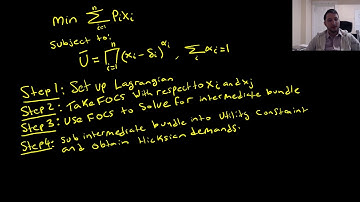 Min Σⁿᵢ₌₁ Pᵢxᵢ
Subject to:
Ū = ∏ⁿᵢ₌₁ (xᵢ - δᵢ)^αᵢ, Σᵢ αᵢ = 1
Step 1: Set up Lagrangian
Step 2: Take FOCs with respect to xᵢ and xⱼ
Step 3: Use FOCs to Solve for intermediate bundle
Step 4: Sub intermediate bundle into Utility Constraint
and obtain Hicksian demands.